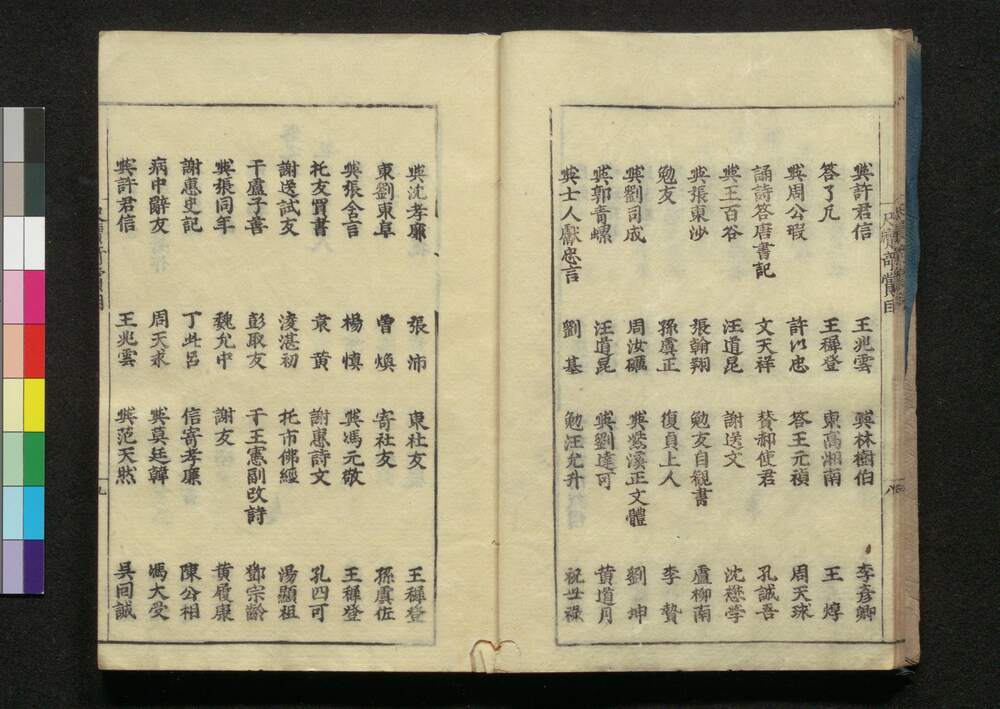 與許君信　王兆雲　與林樹伯　李彥卿
答了凡　王穉登　東高湘南　王焞
與周公瑕　許以忠　答王元禎　周天球
誦詩答唐書記　文天祥　賛郝使君　孔誠吾
與王百谷　汪道昆　謝送文　沈懋學
與張東沙　張翰翔　勉友自觀書　盧柳南
勉友　孫虞正　復貞上人　李贄
與劉司成　周汝礪　與紫溪正文體　劉坤
與郭青螺　汪道昆　與劉達可　黃道月
與士人獻忠言　劉基　勉汪允升　祝世祿
與沈孝廉　張沛　東社友　王穉登
東劉東阜　曾煥　寄社友　孫虞佐
與張舍言　楊慎　與馮元敬　王穉登
托友買書　袁黃　謝惠詩文　孔四可
謝送試友　淩湛初　托市佛經　湯顯祖
干盧子善　彭取友　干王憲副改詩　鄧宗齡
與張同年　魏允中　謝友　黃履康
謝惠史記　丁此呂　信寄孝廉　陳公相
病中辭友　周天求　與莫廷韓　馮大受
與許君信　王兆雲　與范天然　吳同誠
九